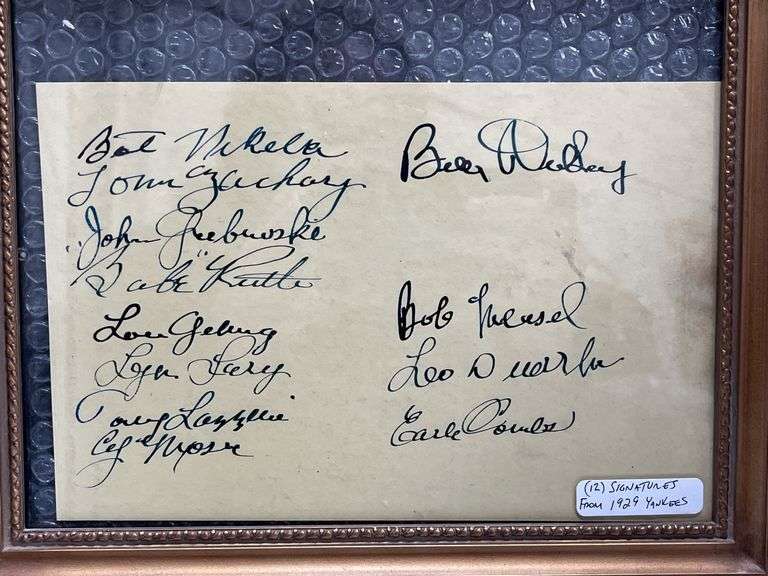 Bots Nekola
Tom Zachary
John Grabowski
"Babe" Ruth
Lou Gehrig
Lyn Lary
Tony Lazzeri
Cy Moore
Bill Dickey
Bob Meusel
Leo Durocher
Earle Combs
(12) SIGNATURES
FROM 1929 YANKEES